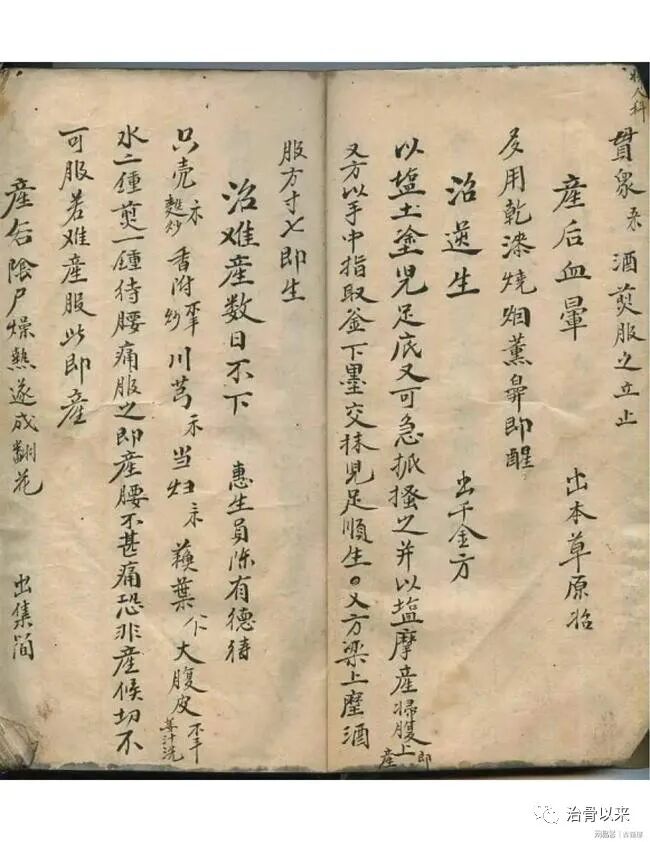 婦人科
貫衆 酒煎服之立止
産后血暈 出本草原始
多用乾漆燒烟薰鼻即醒
治逆生 出千金方
以塩土塗児足底又可急抓搔之并以塩摩産婦腹上即産
又方以手中指取釜下墨交抹児足順生。又方梁上塵酒
服方寸匕即生
治难産数日不下 惠生員陈有德待
只壳 麩炒 香附 炒 川芎 当归 蘓葉 大腹皮 姜汁洗
水二鍾煎一鍾待腰痛服之即産腰不甚痛恐非産候切不
可服若难産服此即産
産后陰户燥熱遂成翻花 出集简
治骨以来